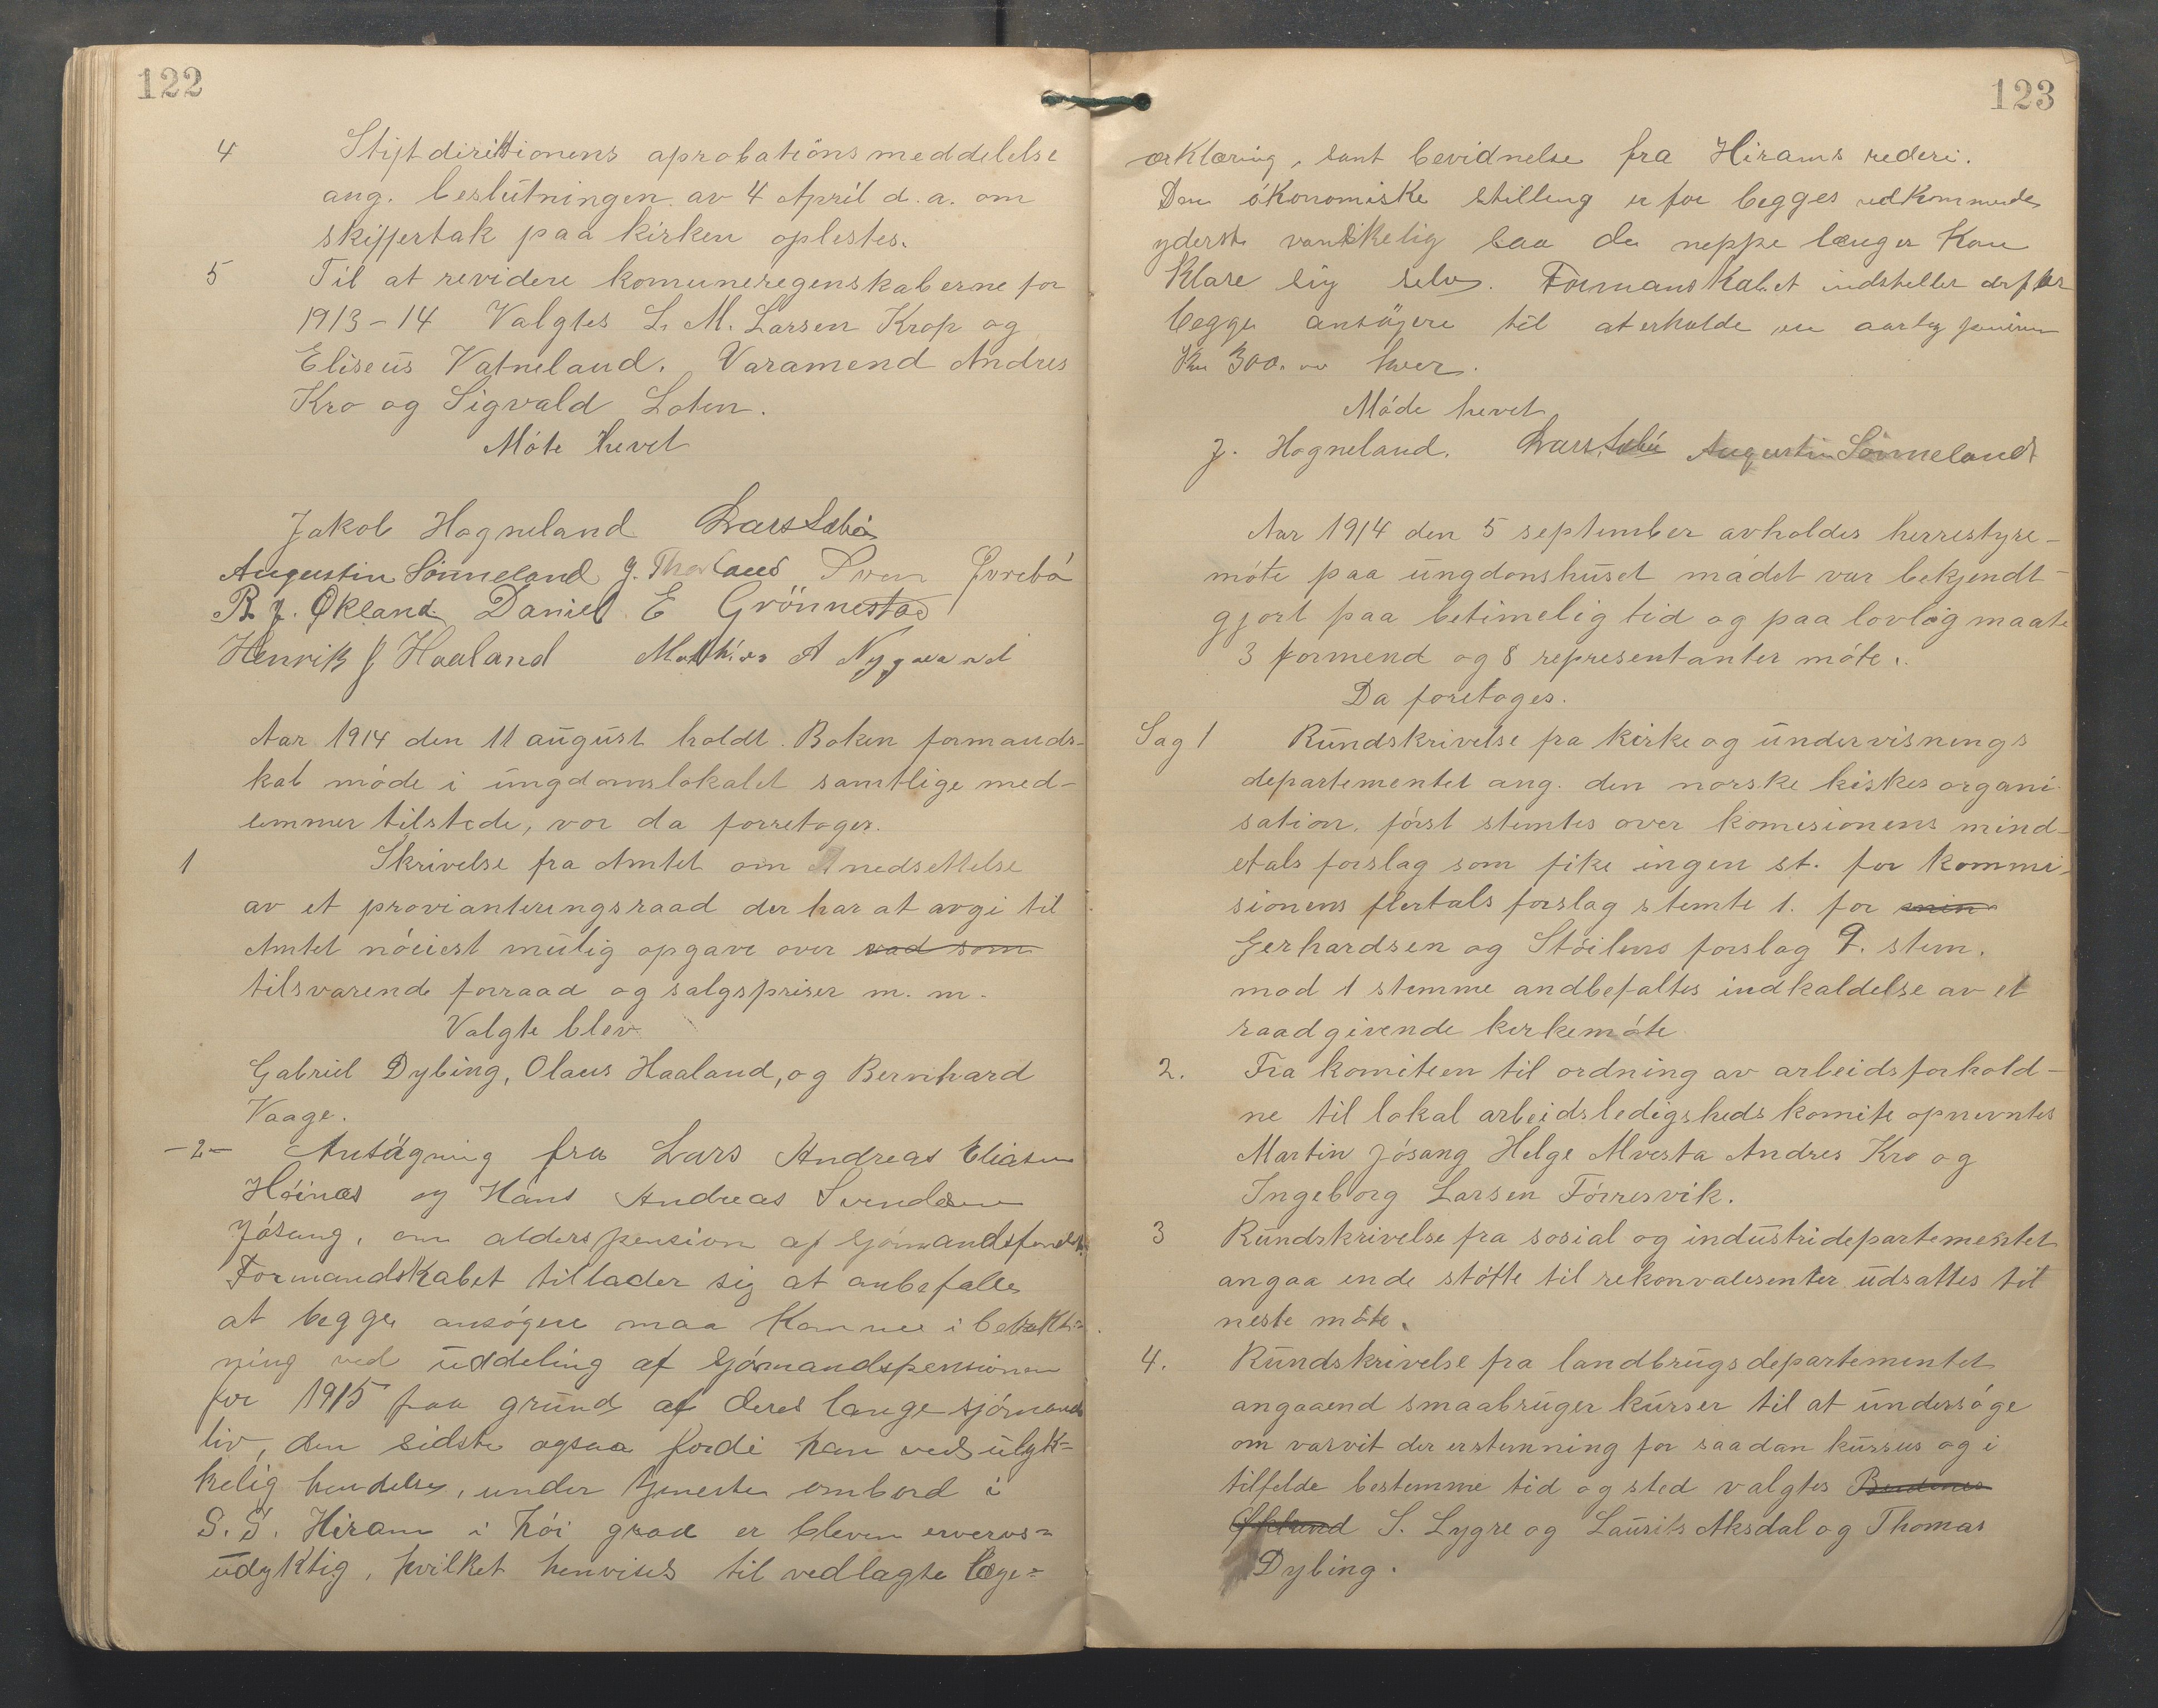 122
4 Stiftdirektionens aprobationsmeddelelse
ang. beslutningen av 4 April d. a. om
skiffertak paa kirken oplestes.
5 Til at revidere komuneregenskaberne for
1913-14 Valgtes L. M. Larsen Krop og
Eliseus Vatneland. Varamend Andres
Kro og Sigvald Loten.
Móte hevet
Jakob Hogneland Lars Sæbö
Augustin Sönneland J. Thorland Sven Øvrebö
B. J. Økland Daniel E Grönnestad
Henrik J Haaland Mathias A Nygaard
Aar 1914 den 11 august holdt Boken formands-
kab móde i ungdomslokalet samtlige med-
lemmer tilstede, vor da forretoges.
1 Skrivelse fra Amtet om nedsettelse
av et provianteringsraad der har at avgi til
Amtet nóeiest mulig opgave over vad som
tilsvarende forraad og salgspriser m. m.
Valgte blev
Gabriel Dybing, Olaus Haaland, og Bernhard
Vaage.
-2- Ansógning fra Lars Andreas Eliasen
Hóinæs og Hans Andreas Svendsen
Jósang, om alderspension af sjómandsfondet.
Formandskabet tillader sig at anbefalle
at begge ansógere maa komme i betrakt-
ning ved uddeling af sjómandspensionen
for 1915 paa grund af deres lange sjómands
liv, den sidste ogsaa fordi han ved ulyk=
kelig hendelse, under tjeneste ombord i
S. S. Hiram i hói grad er bleven ervervs=
udyktig, hvilket henvises til vedlagte læge=
123
ærklæring, samt bevidnelse fra Hirams rederi.
Den ókonomiske stilling er for begges vedkommende
yderst vanskelig saa de neppe længer kan
klare sig selv. Formanskabet indstiller derfor
begge ansógere til at erholde en aarlig pension
Kr 300.00 hver.
Móde hevet
J. Hogneland. Lars Sæbö Augustin Sönneland
Aar 1914 den 5 september avholdes herrestyre-
móte paa ungdonshuset mádet var bekjendt-
gjort paa betimelig tid og paa lovlig maate
3 formend og 8 representanter móte.
Da foretoges.
Sag 1 Rundskrivelse fra kirke og undervisnings
departementet ang. den norske kiskes organi-
sation. fórst stemtes over komesionens mind-
etals forslag som fike ingen st. for kommi-
sionens flertals forslag stemte 1. for min
Gerhardsen og Stóilens forslag 9. stem.
mod 1 stemme andbefaltes indkaldelse av et
raadgivende kerkemóte
2. Fra komiteen til ordning av arbeidsforhold-
ne til lokal arbeidsledigsheds komite opnevntes
Martin Jósang Helge Mvesta Andres Kro og
Ingeborg Larsen Fórresvik.
3 Rundskrivelse fra sosial og industridepartementet
angaaende stótte til rekonvalesenter udsattes til
neste móte.
4. Rundskrivelse fra landbrugsdepartementet
angaaend smaabruger kurser til at undersóge
om varvit der erstemning for saadan kursus og i
tilfelde bestemme tid og sted valgtes
S. Lygre og Laurits Aksdal og Thomas
Dybing.